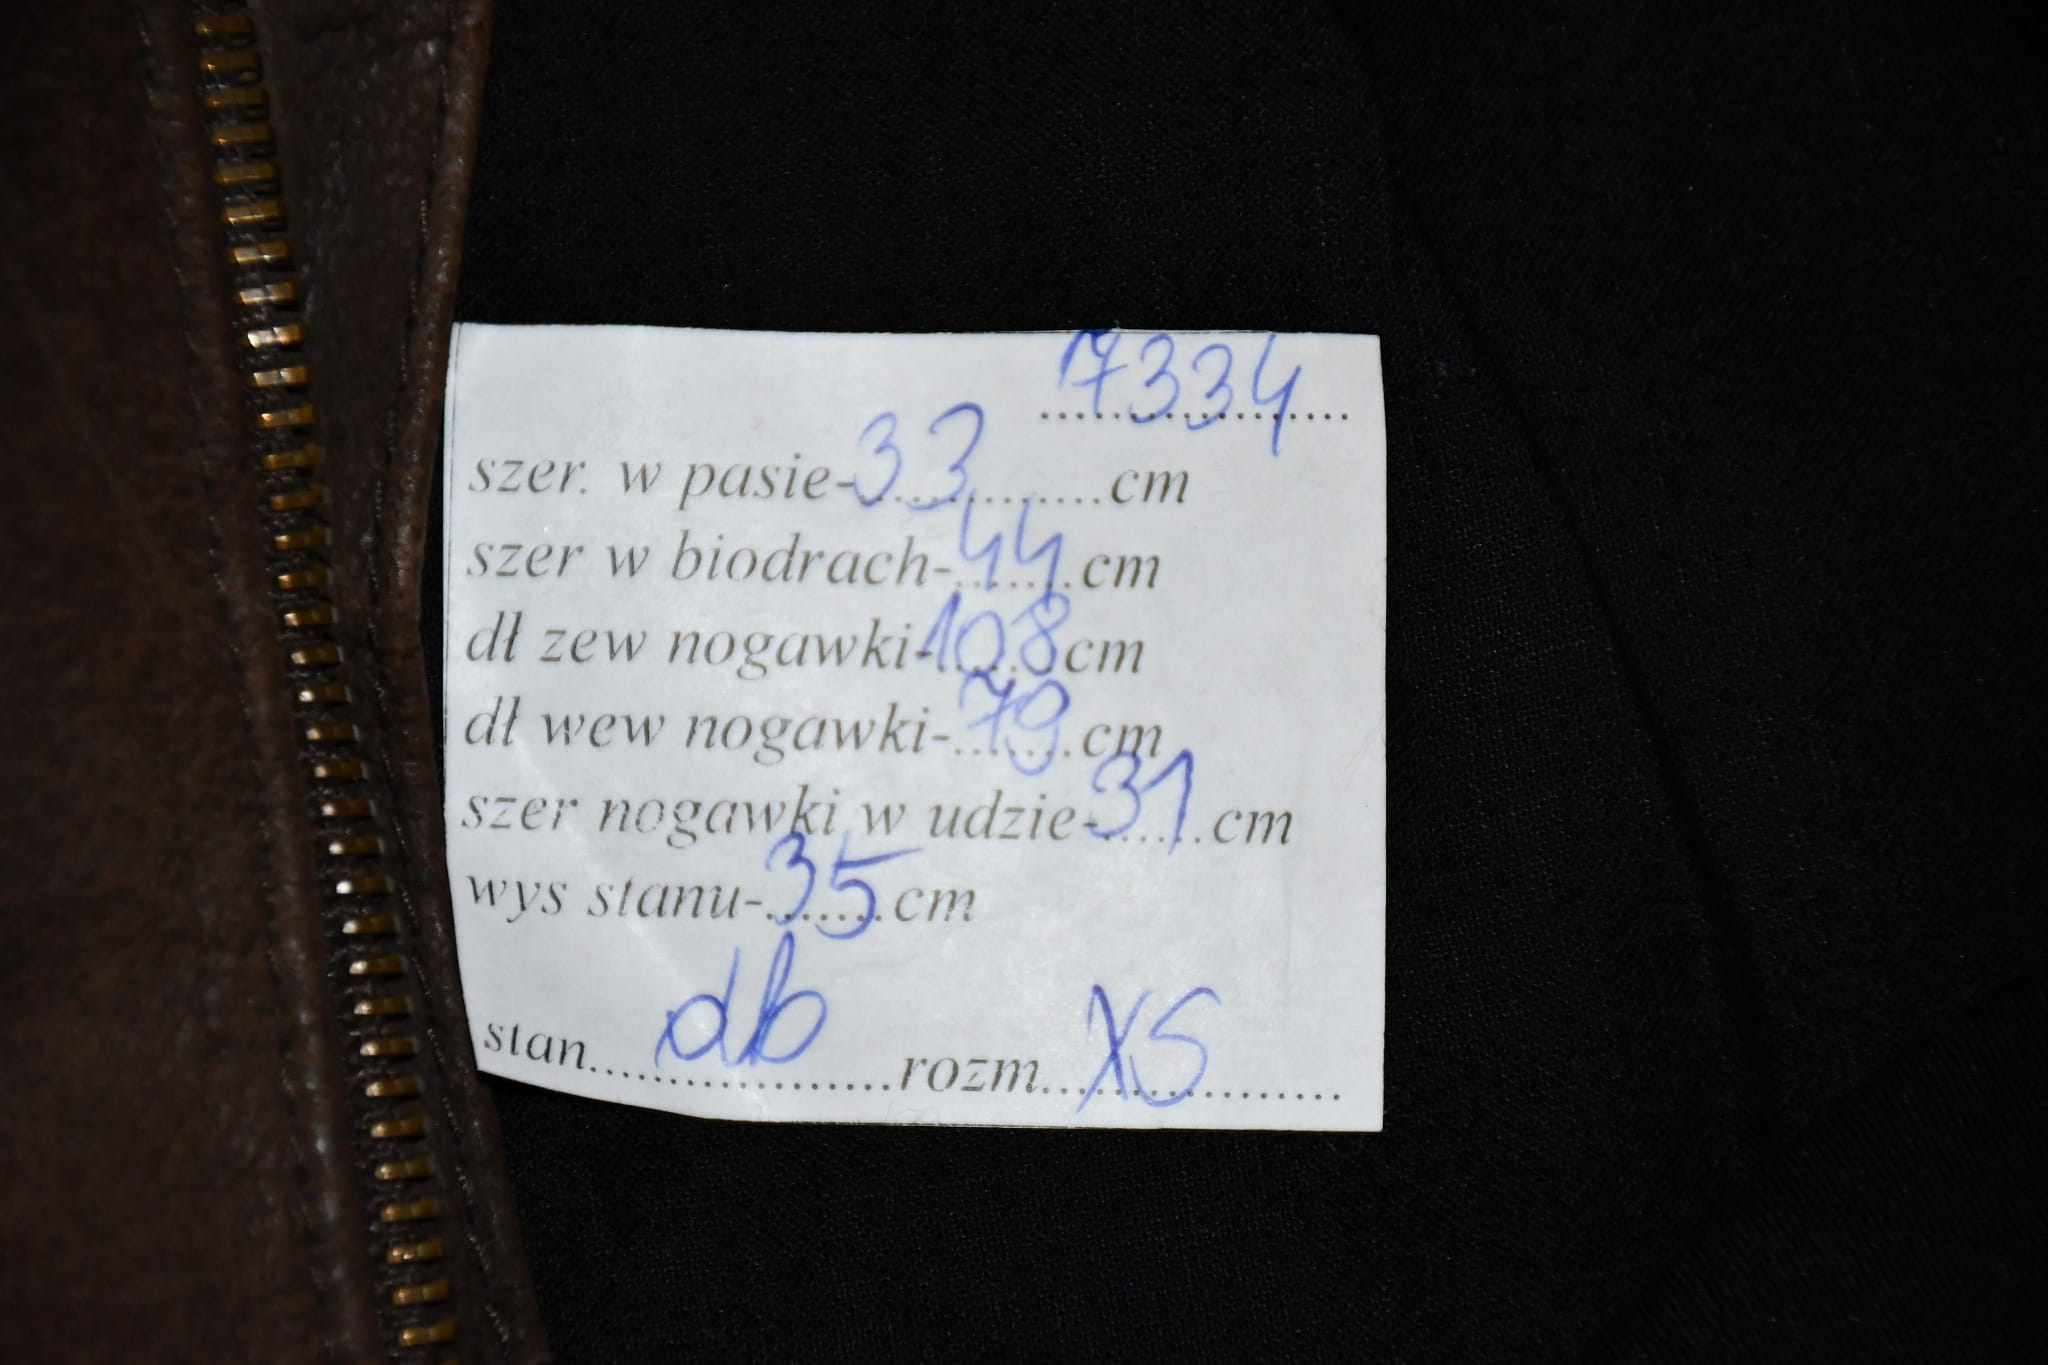 7334
szer. w pasie-33.............cm
szer w biodrach-44cm
dł zew nogawki-108cm
dł wew nogawki-79cm
szer nogawki w udzie-31cm
wys stanu-35cm
stan...db...rozm...XS...